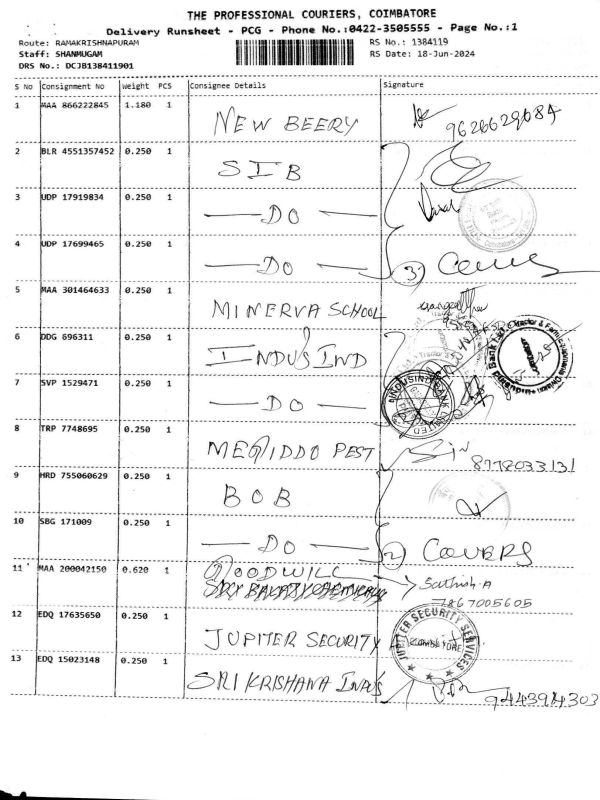 THE PROFESSIONAL COURIERS, COIMBATORE
Delivery Runsheet - PCG - Phone No.:0422-3505555 - Page No.:1
Route: RAMAKRISHNAPURAM RS No.: 1384119
Staff: SHANMUGAM RS Date: 18-Jun-2024
DRS No.: DCJB138411901
S No Consignment No Weight PCS Consignee Details Signature
1 MAA 866222845 1.180 1 NEW BEERY 9626629684
2 BLR 4551357452 0.250 1 SIB
3 UDP 17919834 0.250 1 — DO —
4 UDP 17699465 0.250 1 — DO — 3
5 MAA 301464633 0.250 1 MINERVA SCHOOL
6 DDG 696311 0.250 1 INDUSIND
7 SVP 1529471 0.250 1 — DO —
INDUSIND BANK LIMITED
8 TRP 7748695 0.250 1 MEGIDDO PEST 8778033131
9 HRD 755060629 0.250 1 BOB
10 SBG 171009 0.250 1 — DO — 2 COVERS
11 MAA 200042150 0.620 1 GOODWILL Sathish.A
7867005605
12 EDQ 17635650 0.250 1 JUPITER SECURITY
JUPITER SECURITY SERVICES
COIMBATORE
13 EDQ 15023148 0.250 1 SRI KRISHANA INDUS 944394303